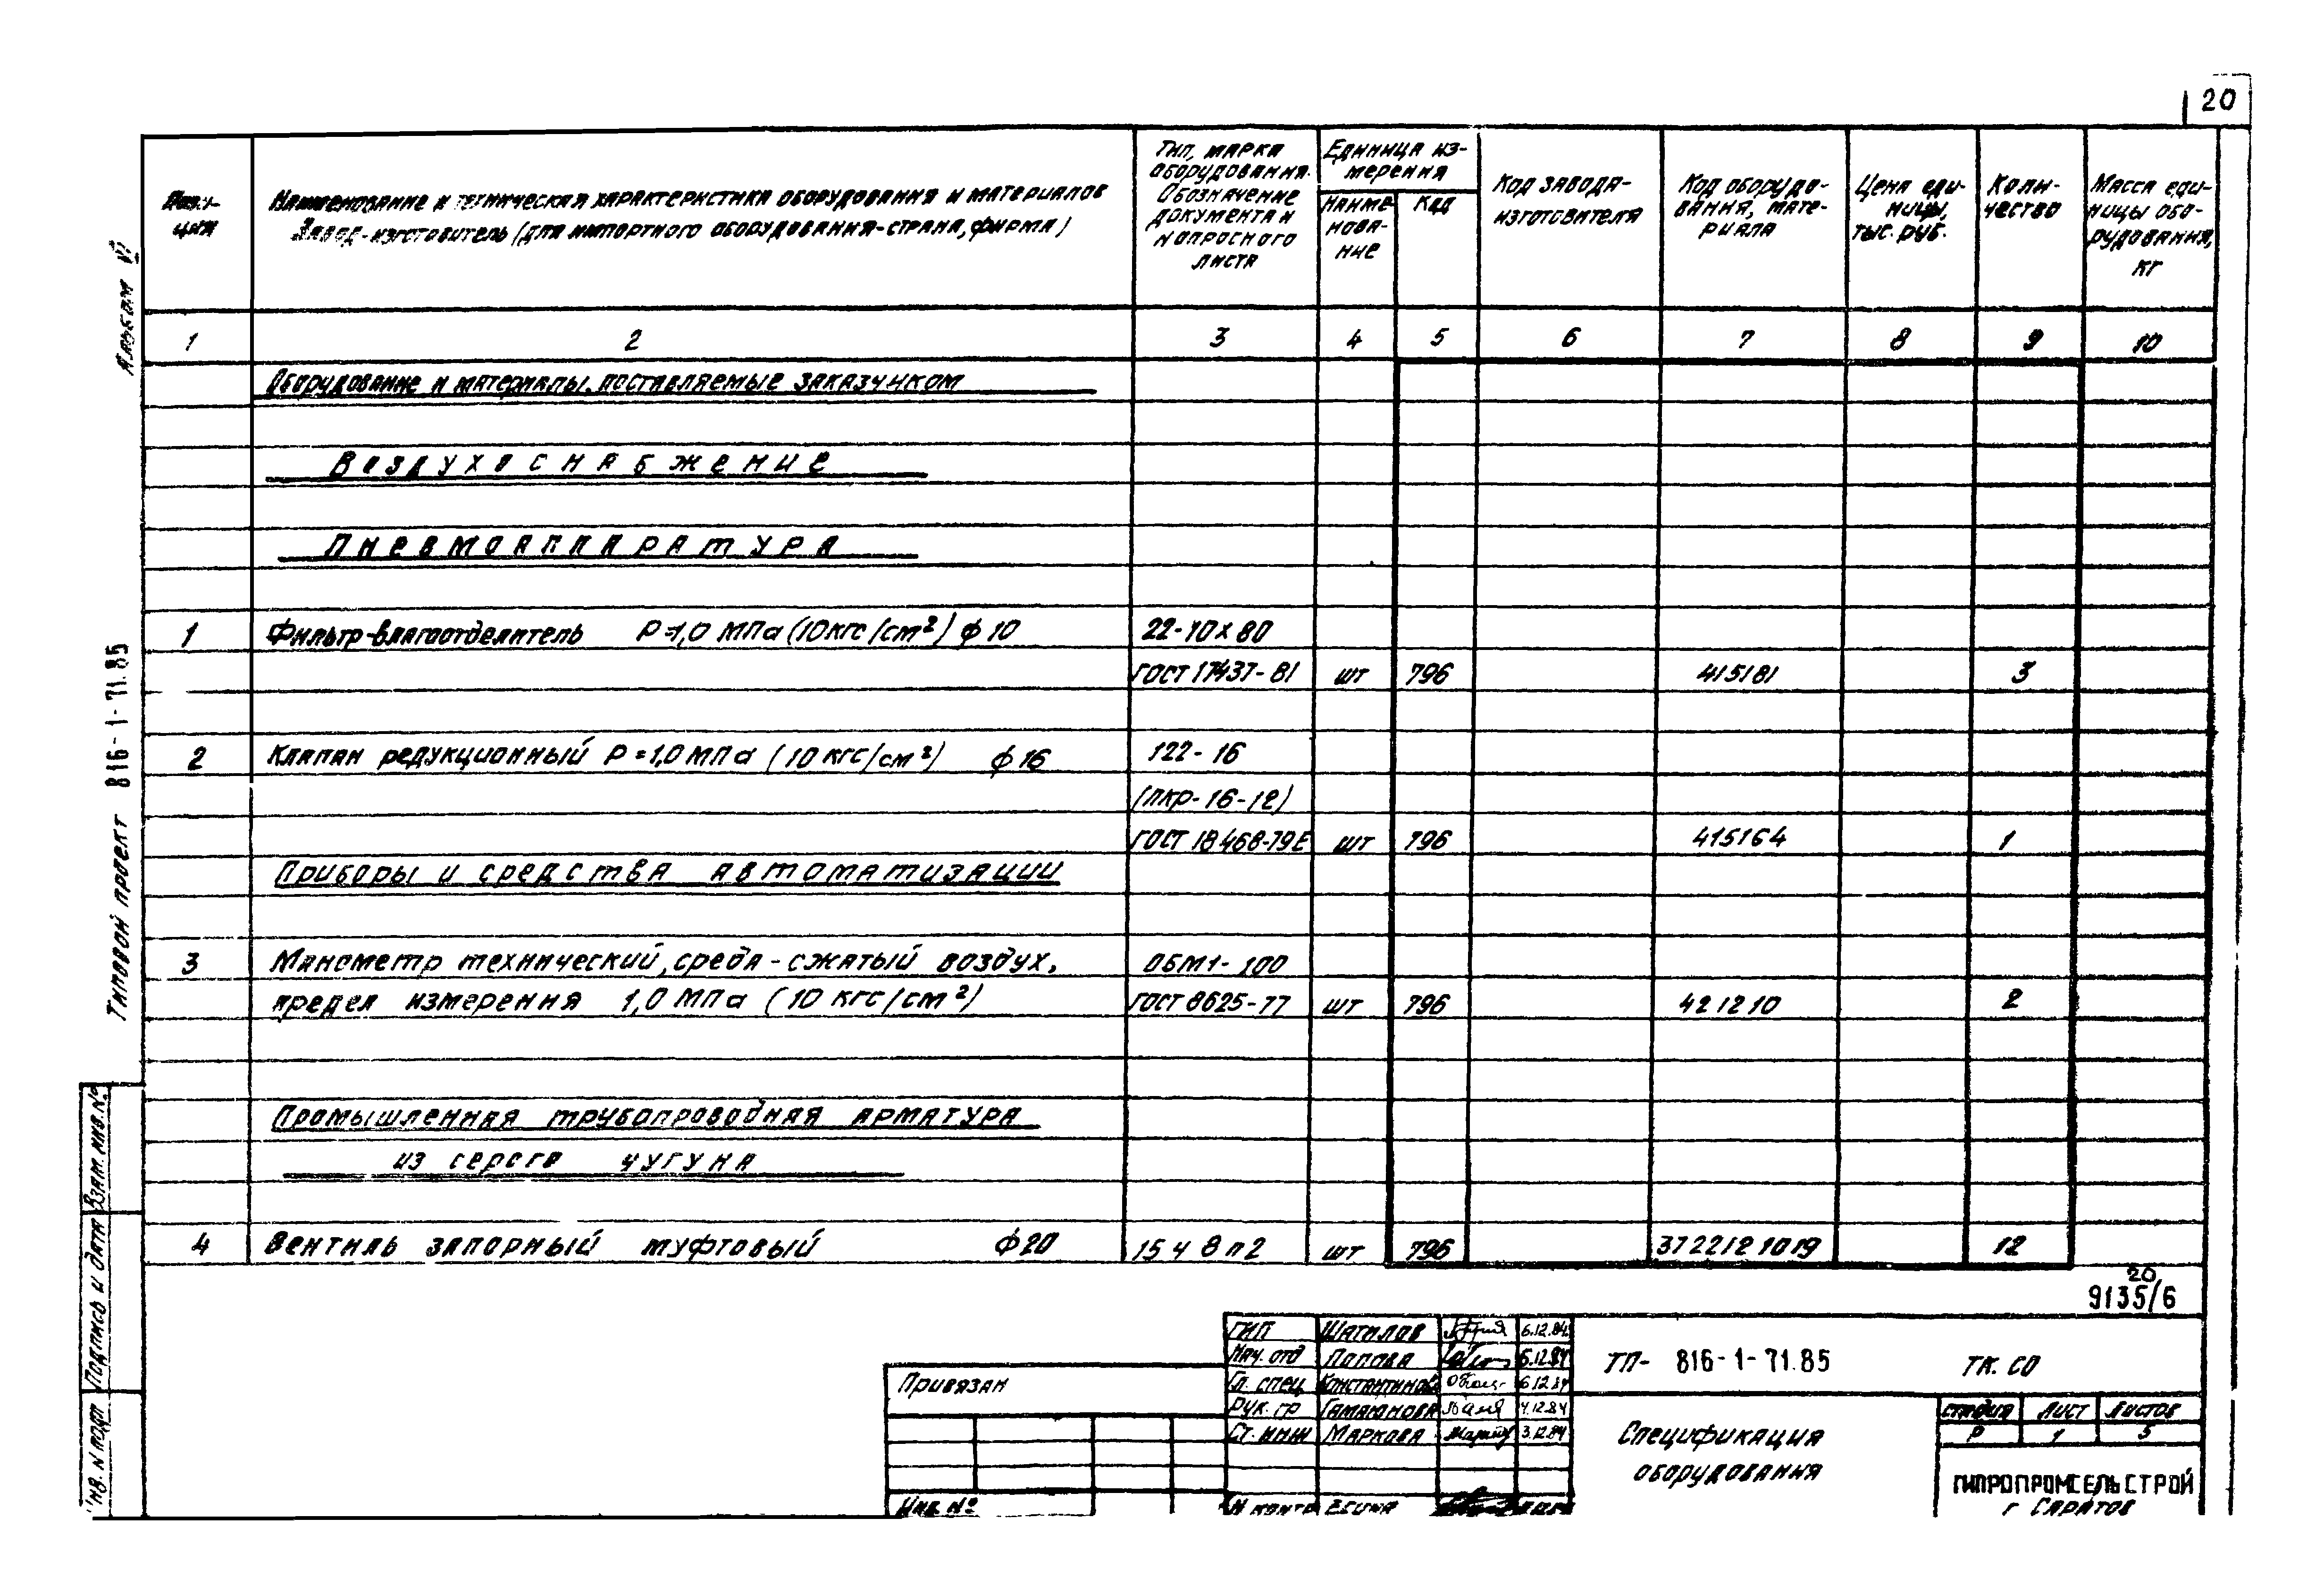 20
Пози-
ция
Наименование и техническая характеристика оборудования и материалов
Завод-изготовитель (для импортного оборудования-страна, фирма)
Тип, марка
оборудования.
Обозначение
документа и
опросного
листа
Единица из-
мерения
Наиме-
нова-
ние
Код
Код завода-
изготовителя
Код оборудо-
вания, мате-
риала
Цена еди-
ницы,
тыс. руб.
Коли-
чество
Масса еди-
ницы обо-
рудования,
кг
1 2 3 4 5 6 7 8 9 10
Оборудование и материалы, поставляемые заказчиком
Воздухоснабжение
Пневмоаппаратура
1 Фильтр-влагоотделитель P=1,0 МПа (10кгс/см²) ф 10 22-10х80
ГОСТ 17437-81 шт 796 415181 3
2 Клапан редукционный P=1,0 МПа (10 кгс/см²) ф 16 122-16
(ПКР-16-12)
ГОСТ 18468-79Е шт 796 415164 1
Приборы и средства автоматизации
3 Манометр технический, среда-сжатый воздух, ОБМ1-100
предел измерения 1,0 МПа (10 кгс/см²) ГОСТ 8625-77 шт 796 421210 2
Промышленная трубопроводная арматура
из серого чугуна
4 Вентиль запорный муфтовый ф20 15ч8п2 шт 796 3722121019 12
20
9135/6
Альбом VI
Типовой проект 816-1-71.85
Взам. инв. №
Подпись и дата
Инв. N подл
Привязан
Инв. №
ГИП Шатилов 6.12.84
Нач. отд Попова 6.12.84
Гл. спец Константинова 6.12.84
Рук. гр Гамаюнова 4.12.84
Ст. инж Маркова 3.12.84
Н контр
ТП- 816-1-71.85 ТК. СО
Спецификация
оборудования
стадия Лист Листов
Р 1 5
ГИПРОПРОМСЕЛЬСТРОЙ
г Саратов